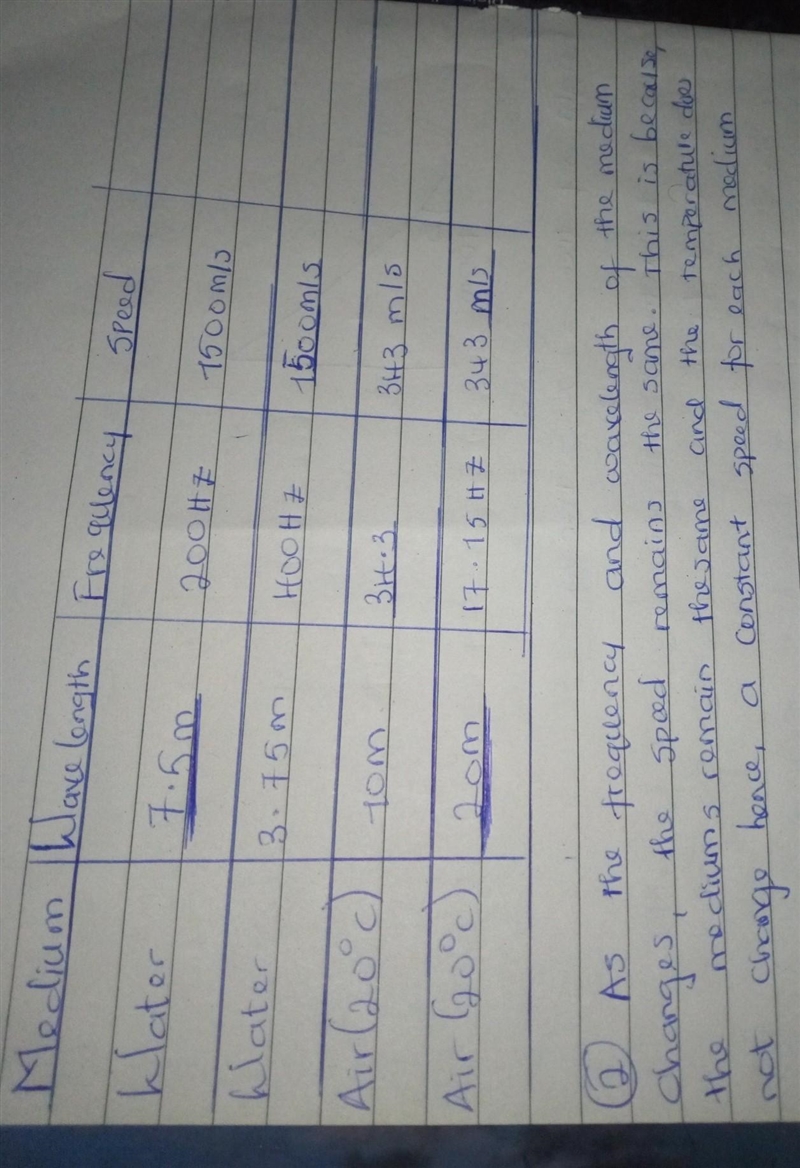 Medium Wavelength Frequency Speed
Water 7.5m 200HZ 1500m/s
Water 3.75m 400HZ 1500m/s
Air (20°C) 10m 34.3 343 m/s
Air (20°C) 20m 17.15HZ 343 m/s
(2) As the frequency and wavelength of the medium
changes, the speed remains the same. This is because,
the mediums remain thesame and the temperature does
not change hence, a constant speed for each medium